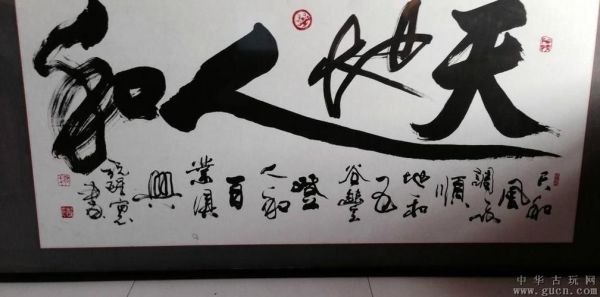 天地人和
天和
風
調雨
順
地和
五
谷豐
登
人和
百
業俱
興
書
中华古玩网
www.gucn.com